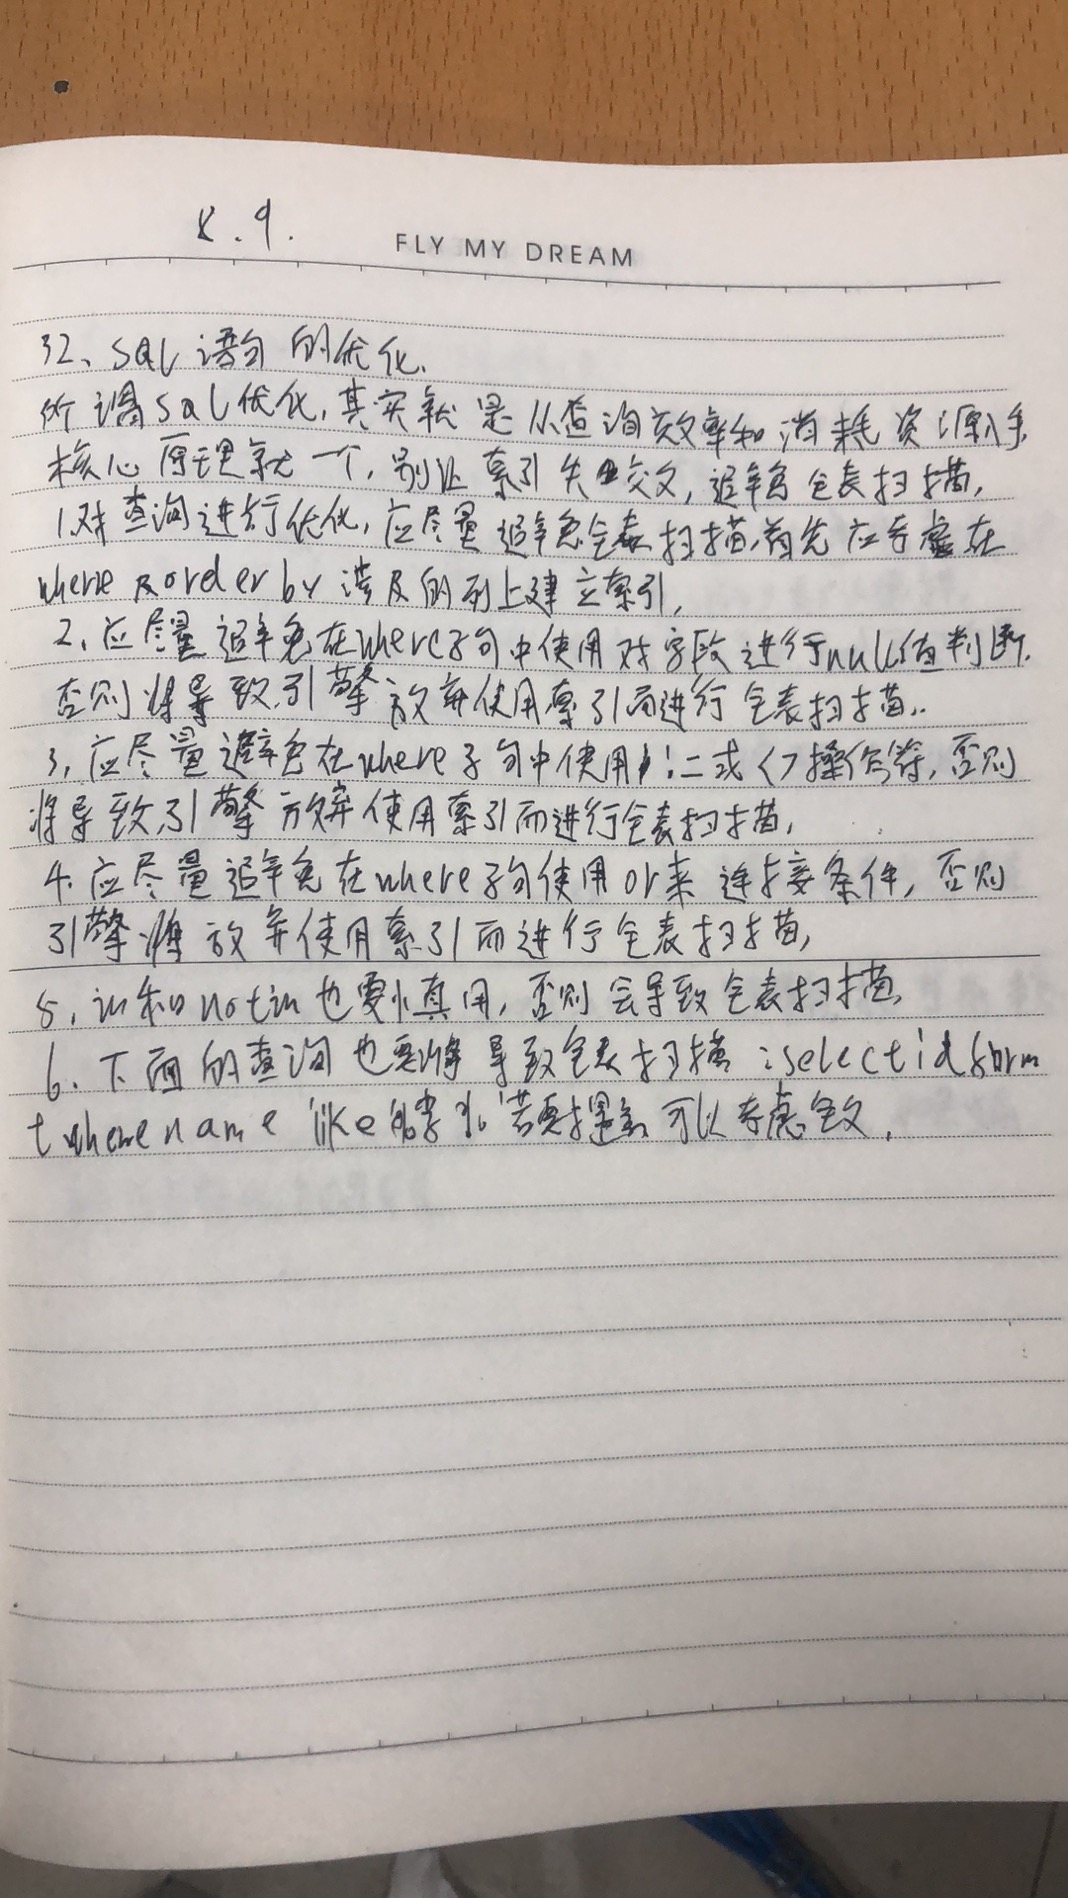 8.9.
FLY MY DREAM
32、SQL语句的优化.
所谓SQL优化,其实就是从查询效率和消耗资源入手
核心原理就一个,别让索引失效,避免全表扫描,
1.对查询进行优化,应尽量避免全表扫描,首先应考虑在
where及order by涉及的列上建立索引,
2、应尽量避免在where子句中使用对字段进行null值判断.
否则将导致引擎放弃使用索引而进行全表扫描..
3,应尽量避免在where子句中使用!=或<>操作符,否则
将导致引擎放弃使用索引而进行全表扫描,
4.应尽量避免在where子句使用or来连接条件,否则
引擎将放弃使用索引而进行全表扫描,
5,in和not in也要慎用,否则会导致全表扫描
6、下面的查询也要将导致全表扫描:select id form
t where name like 若要提高可以考虑全文,